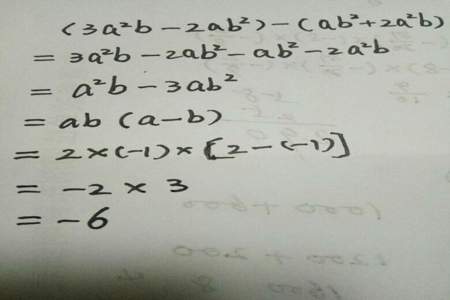 (3a²b-2ab²)-(ab²+2a²b)
=3a²b-2ab²-ab²-2a²b
=a²b-3ab²
=ab(a-b)
=2×(-1)×[2-(-1)]
=-2×3
=-6